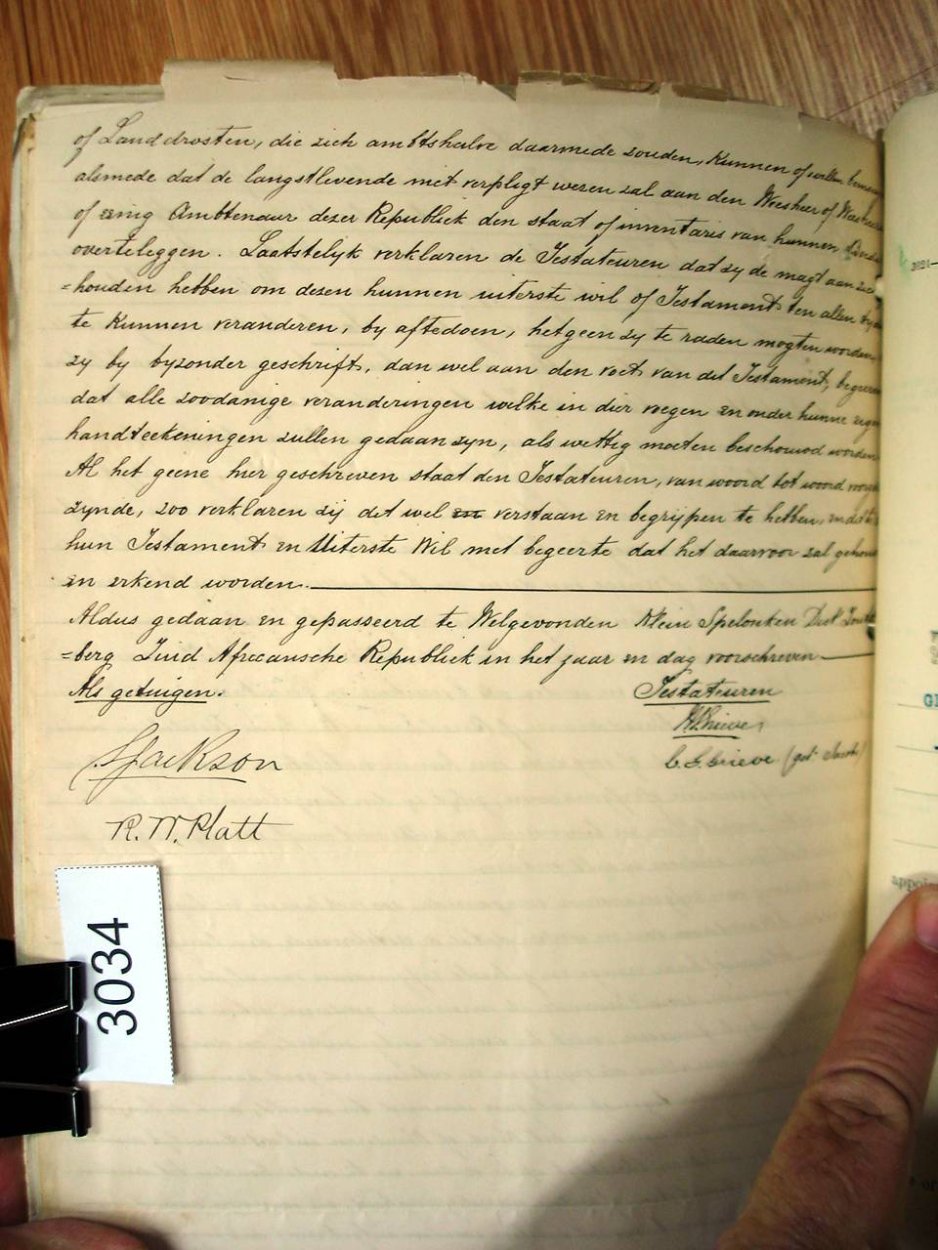 of Landdrosten, die zich ambtshalve daarmede zouden, kunnen of willen
alsmede dat de langstlevende niet verpligt wezen zal aan den Weesheer of
of eenig Ambtenaar dezer Republiek den staat of inventaris van hunnen
overteleggen. Laatstelijk verklaren de Testateuren dat zy de magt aan
=houden hebben om dezen hunnen uiterste wil of Testament ten allen
te kunnen veranderen, by aftedoen, hetgeen zy te raden mogten worden
zy by byzonder geschrift, dan wel aan den voet van dit Testament,
dat alle zoodanige veranderingen welke in dier voegen en onder hunne
handteekeningen zullen gedaan zyn, als wettig moeten beschouwd worden
Al het geene hier geschreven staat den Testateuren, van woord tot woord
zynde, zoo verklaren zij dit wel en verstaan en begrijpen te hebben,
hun Testament en Uiterste Wil met begeerte dat het daarvoor zal
en erkend worden.
Aldus gedaan en gepasseerd te Welgevonden Klein Spelonken Dist
=berg Zuid Africaansche Republiek in het jaar en dag voorschreven
Als getuigen. Testateuren
Grieve
SJackson C.S. Grieve
R. W. Platt
3034